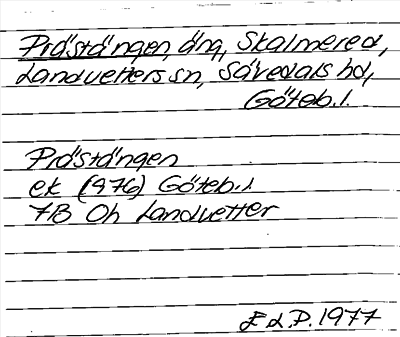 Prästängen, äng, Skalmered,
Landvetters sn, Sävedals hd,
Göteb. l.
Prästängen
ek (976) Göteb. l
7B Oh Landvetter
E d. P. 1977